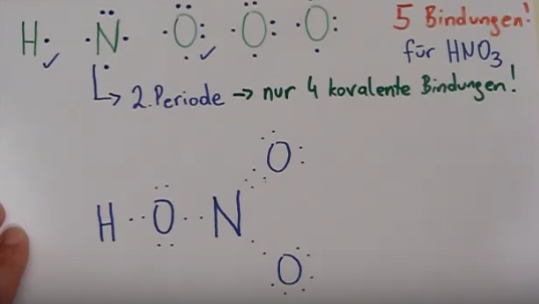 H N O O O 5 Bindungen!
für HNO3
↳ 2. Periode → nur 4 kovalente Bindungen!
O
H O N
O